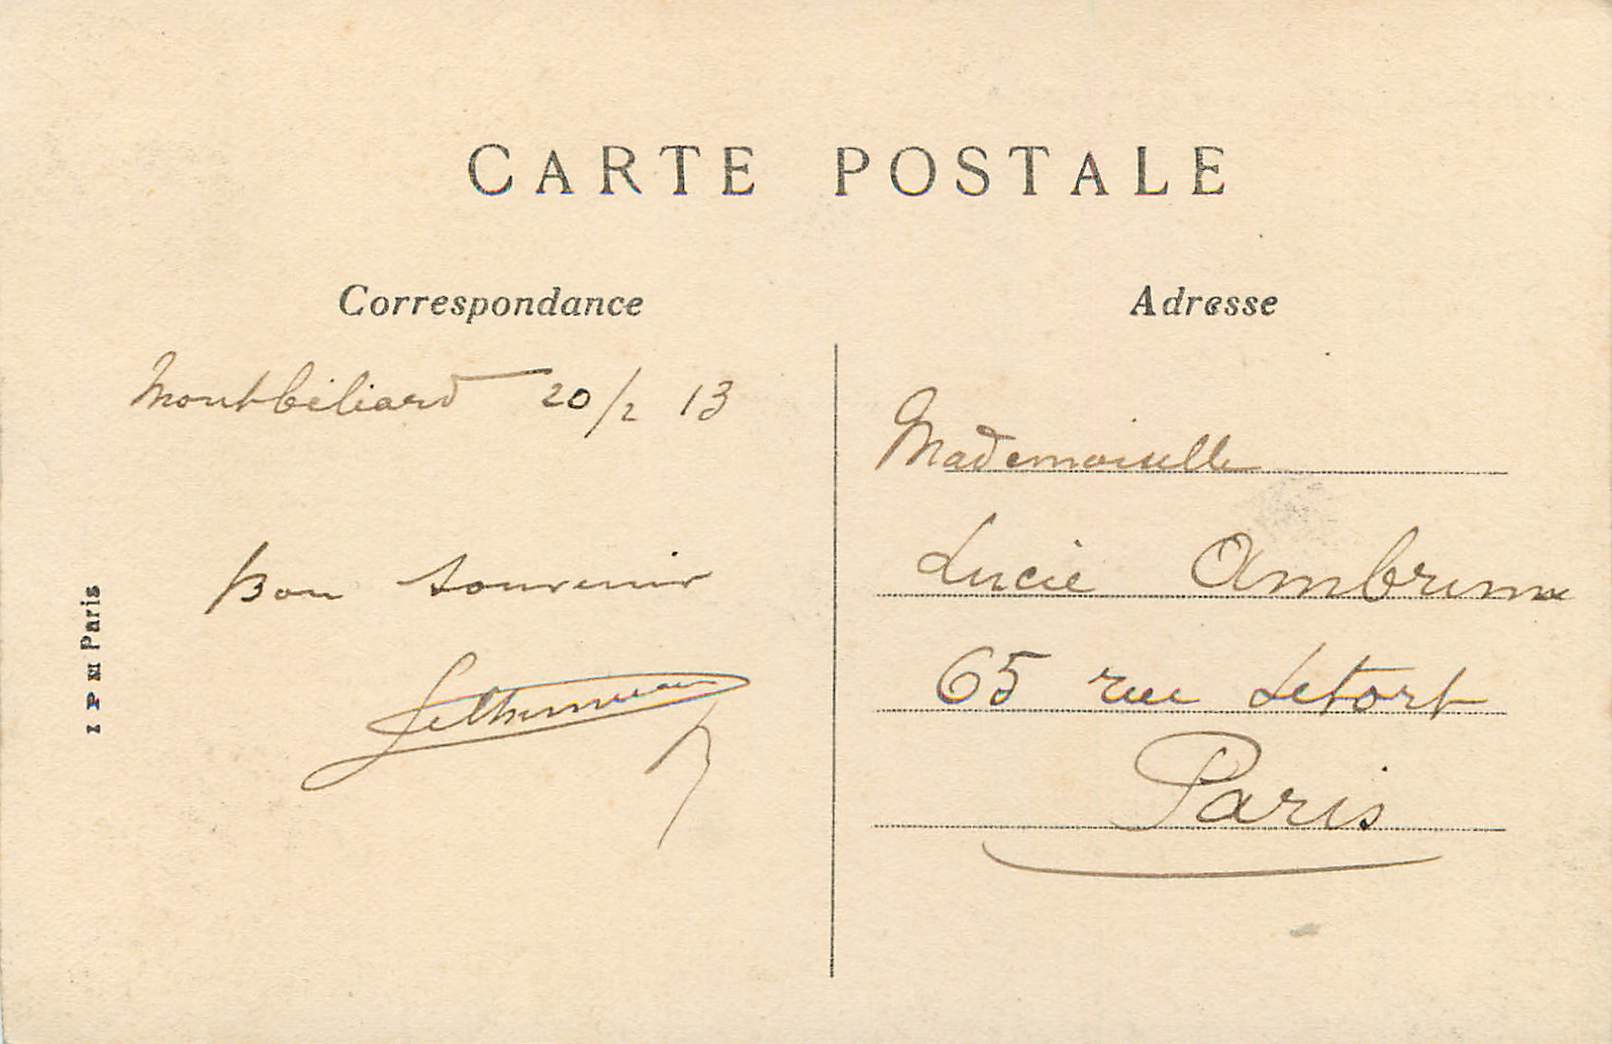 CARTE POSTALE
Correspondance
Montbéliard 20/2 13
Bon souvenir
I P M Paris
Adresse
Mademoiselle
Lucie
65 rue Letort
Paris